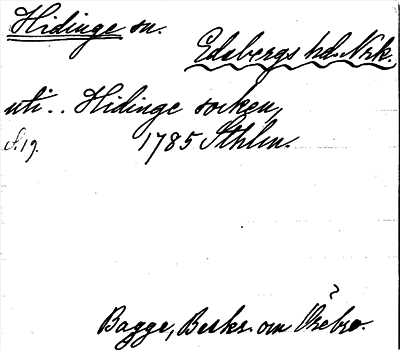 Hidinge sn.
Edsbergs hd. Nrk.
uti.. Hidinge socken,
s. 19. 1785 Sthlm.
Bagge, Beskr. om Örebro.